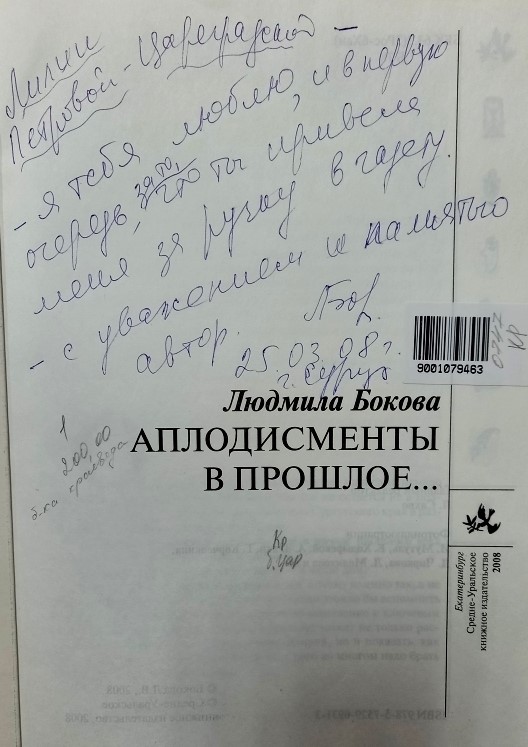 Лилии
Петровой-Цареградской –
– я тебя люблю, и в первую
очередь, за то, что ты привела
меня за ручку в газету.
– с уважением и памятью
автор.
25.03.08 г.
г. Сургут
9001079463
Кр
Людмила Бокова
АПЛОДИСМЕНТЫ
В ПРОШЛОЕ...
1
200,00
б-ка краеведа
Кр
б. Цар
Екатеринбург
Средне-Уральское
книжное издательство
2008